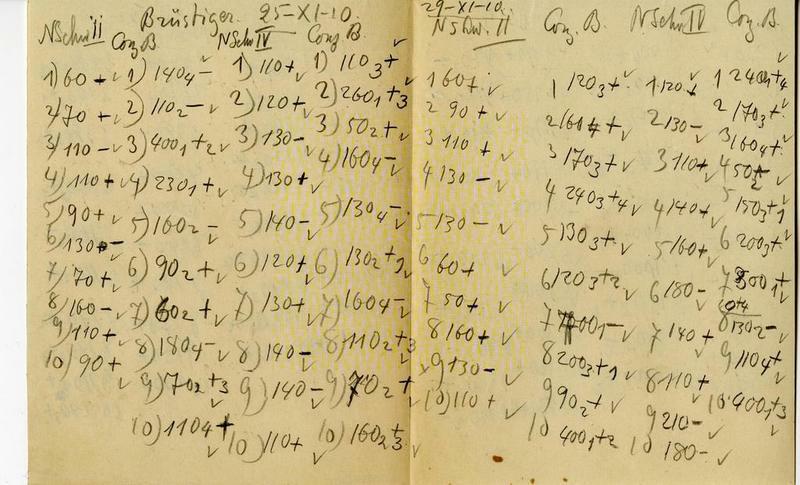 Brüstiger. 25-XI-10.
NSchw II
Conz B.
NSchw IV
Conz B.
1) 60 + √ 1) 140₄ - 1) 110 + √ 1) 110₃ + √
2) 70 + √ 2) 110₂ - √ 2) 120 + √ 2) 260₁ + 3
3) 110 - √ 3) 400₁ + 2 √ 3) 130 - √ 3) 50₂ + √
4) 110 + √ 4) 230₁ + √ 4) 130 + √ 4) 160₄ - √
5) 90 + √ 5) 160₂ - √ 5) 140 - √ 5) 130₄ - √
6) 130 - √ 6) 90₂ + √ 6) 120 + √ 6) 130₂ +
7) 70 + √ 7) 60₂ + √ 7) 130 + √ 7) 160₄ - √
8) 160 - √ 8) 180₄ - √ 8) 140 - √ 8) 110₂ + 3
9) 110 + √ 9) 70₂ + 3 √ 9) 140 - √ 9) 70₂ + √
10) 90 + √ 10) 110₄ + √ 10) 110 + √ 10) 160₂ + 3 √
29-XI-10.
Conz. B.
NSchw IV
Conz. B.
1 60 + √ 1 120₃ + √ 1 120 + √ 1 240₁ + 4
2 90 + √ 2 160 + √ 2 130 - √ 2 170₃ + √
3 110 + √ 3 170₃ + √ 3 110 + √ 3 160₄ + √
4 130 - √ 4 240₃ + 4 √ 4 140 + √ 4 50₂ + √
5 130 - √ 5 130₃ + √ 5 160 + √ 5 150₃ + 1
6 60 + √ 6 120₃ + 2 √ 6 180 - √ 6 200₃ + √
7 50 + √ 7 √ 7 140 + √ 7 300₁ + √
8 160 + √ 8 200₃ + 1 √ 8 110 + √ 8 130₂ - √
9 130 - √ 9 90₂ + √ 9 210 - √ 9 110₄ + √
10) 110 + √ 10 400₁ + 2 √ 10 180 - √ 10 400₁ + 3 √